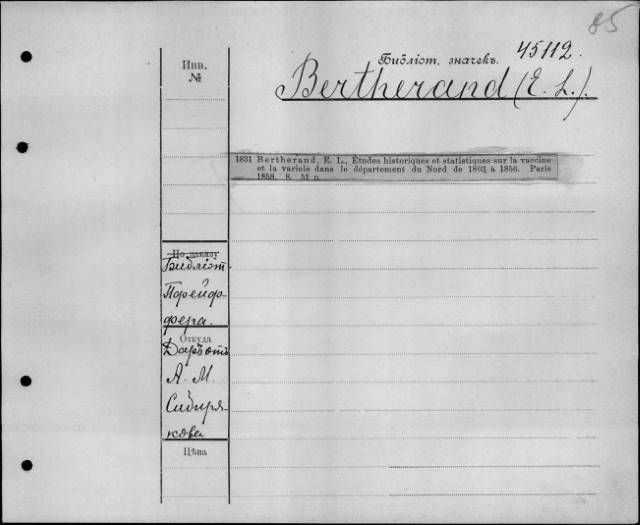 85
45112.
Инв.
№
Библіот. значекъ.
Bertherand (E. L.).
1831 Bertherand, E. L., Études historiques et statistiques sur la vaccine
et la variele dans le département du Nord de 1803 à 1856. Paris
1858. 8. 51 p.
По заказу
Библіот.
Порейф-
фера.
Откуда
Даръ отъ
А. М.
Сибиря-
кова
Цѣна